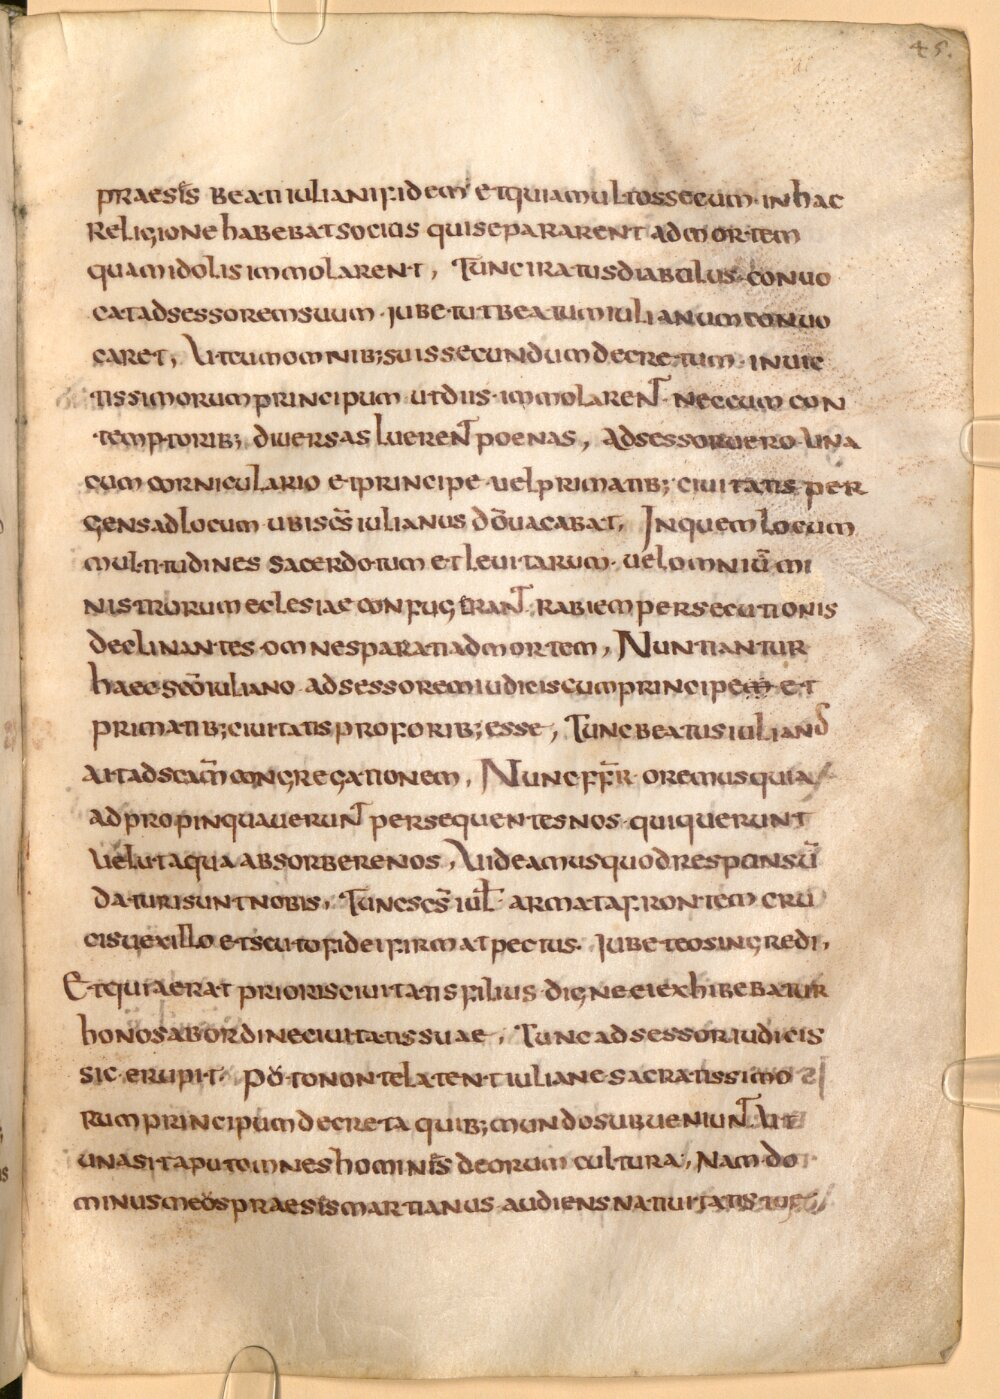 45.
praesis beati iuliani fidem et quia multos secum in hac
religione habebat socios qui se pararent ad mortem
quam idolis immolarent, Tunc iratus diabolus conuo
cat adsessorem suum iubetut beatum iulianum conuo
caret, Ut cum omnib; suis secundum decretum inuic
tissimorum principum ut diis immolarent nec cum con
temptorib; diuersas luerent poenas, adsessor uero una
cum corniculario et principe uel primatib; ciuitatis per
gens ad locum ubi scs̄ iulianus dō uacabat, In quem locum
multitudines sacerdotum et leuitarum uel omniū mi
nistrorum eclesiae confugerant rabiem persecutionis
declinantes omnes parati ad mortem, Nuntiantur
haec scō iuliano adsessorem iudicis cum principem et
primatib; ciuitatis pro forib; esse, Tunc beatus iulianus
ait ad scam̄ congregationem, Nunc ff̄r oremus quia
adpropinquauerunt persequentes nos qui querunt
uelut aqua absorbere nos, Uideamus quod responsū
daturi sunt nobis, Tunc scs̄ iul̄ armata frontem cru
cis uexillo et scuto fidei firmat pectus. Iubet eos ingredi,
Et quia erat prioris ciuitatis filius digne ei exhibebatur
honos ab ordine ciuitatis suae, Tunc adsessor iudicis
sic erupit. Puto non te latent iuliane sacratissimo
rum principum decreta quib; mundo subueniunt Ut
una sit aput omnes hominis deorum cultura, Nam do
minus meus praesis martianus audiens natiuitatis tue